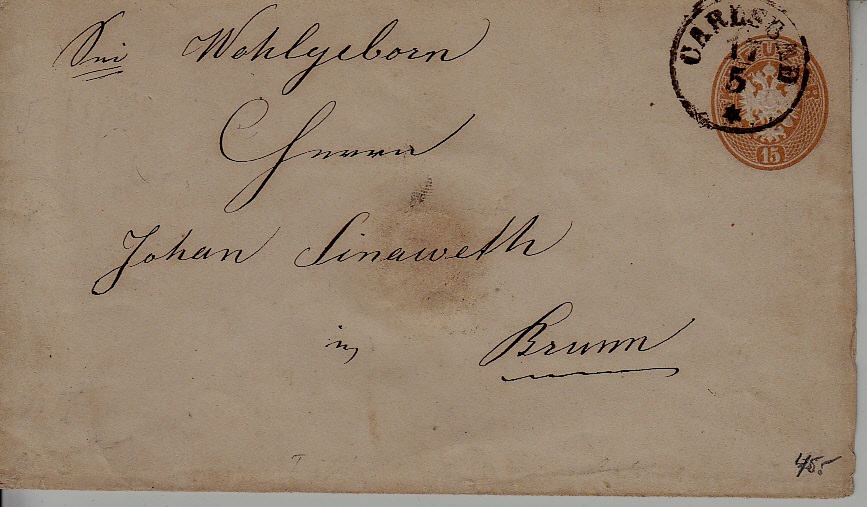 Sni Wohlgeborn
Herrn
Johan Sinaweth
in Brunn
CARLSBAD
17
5
15
45.-